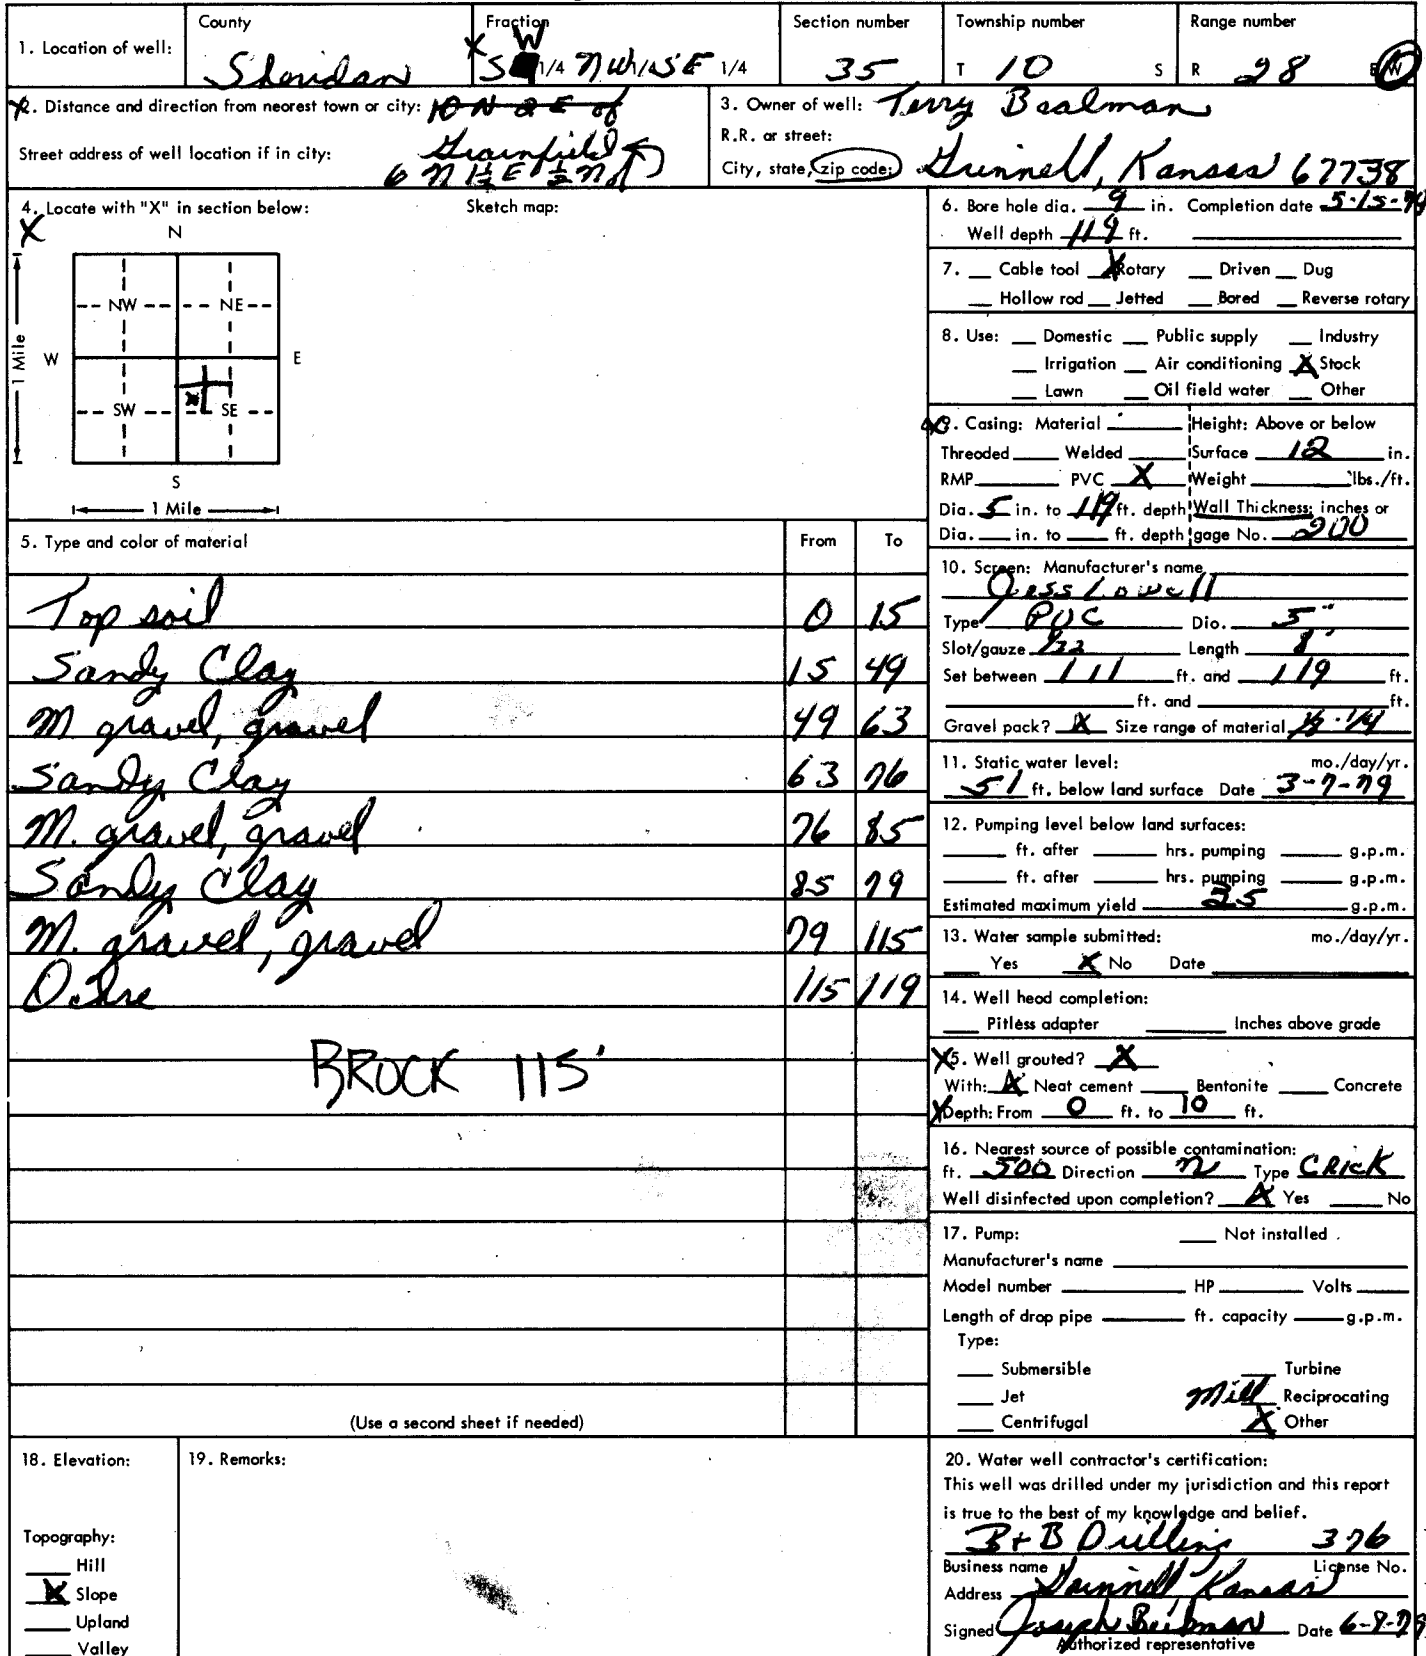 County
Fraction
Section number
Township number
Range number
1. Location of well:
Sheridan
X S W 1/4 NW 1/4 SE 1/4
35
T 10 S
R 28 E W
X 2. Distance and direction from nearest town or city: 10 N 2 E of
Street address of well location if in city: Grainfield
6 N 1½ E ½ N of
3. Owner of well: Terry Baalman
R.R. or street:
City, state, zip code: Grinnell, Kansas 67738
4. Locate with "X" in section below:
Sketch map:
X
N
NW NE
1 Mile
W E
x
SW SE
S
1 Mile
5. Type and color of material From To
Top soil 0 15
Sandy Clay 15 49
M gravel, gravel 49 63
Sandy Clay 63 76
M. gravel, gravel 76 85
Sandy Clay 85 79
M. gravel, gravel 79 115
115 119
BROCK 115'
(Use a second sheet if needed)
6. Bore hole dia. 9 in. Completion date 5-15-79
Well depth 119 ft.
7. Cable tool X Rotary Driven Dug
Hollow rod Jetted Bored Reverse rotary
8. Use: Domestic Public supply Industry
Irrigation Air conditioning X Stock
Lawn Oil field water Other
9. Casing: Material Height: Above or below
Threaded Welded Surface 12 in.
RMP PVC X Weight lbs./ft.
Dia. 5 in. to 119 ft. depth Wall Thickness: inches or
Dia. in. to ft. depth gage No. 200
10. Screen: Manufacturer's name
Jess Lowell
Type PVC Dia. 5"
Slot/gauze 1/32 Length 8'
Set between 111 ft. and 119 ft.
ft. and ft.
Gravel pack? X Size range of material 1/8-1/4
11. Static water level: mo./day/yr.
51 ft. below land surface Date 3-7-79
12. Pumping level below land surfaces:
ft. after hrs. pumping g.p.m.
ft. after hrs. pumping g.p.m.
Estimated maximum yield 25 g.p.m.
13. Water sample submitted: mo./day/yr.
Yes X No Date
14. Well head completion:
Pitless adapter Inches above grade
X 15. Well grouted? X
With: X Neat cement Bentonite Concrete
X Depth: From 0 ft. to 10 ft.
16. Nearest source of possible contamination:
ft. 500 Direction N Type CRICK
Well disinfected upon completion? X Yes No
17. Pump: Not installed
Manufacturer's name
Model number HP Volts
Length of drop pipe ft. capacity g.p.m.
Type:
Submersible Turbine
Jet Mill Reciprocating
Centrifugal X Other
18. Elevation:
Topography:
Hill
X Slope
Upland
Valley
19. Remarks:
20. Water well contractor's certification:
This well was drilled under my jurisdiction and this report
is true to the best of my knowledge and belief.
B+B Drilling 376
Business name License No.
Address Grinnell, Kansas
Signed Joseph Date 6-9-79
Authorized representative